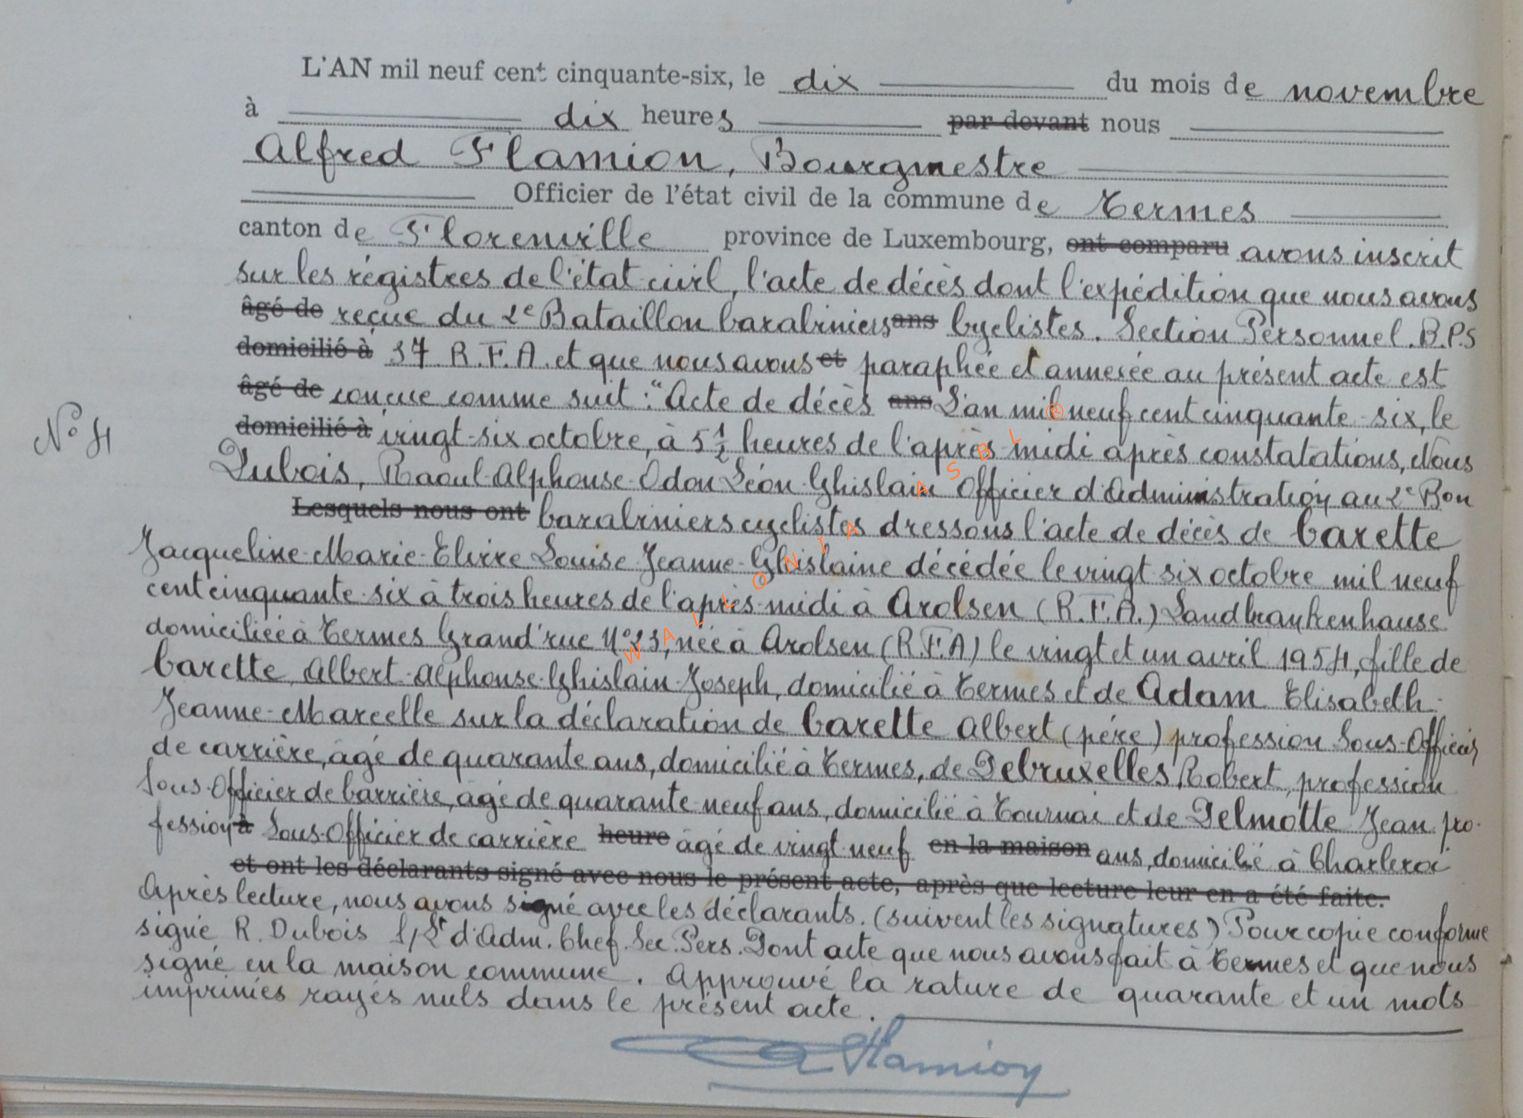 L'AN mil neuf cent cinquante-six, le dix du mois de novembre
à dix heures par devant nous
Alfred Flamion, Bourgmestre
Officier de l'état civil de la commune de Termes
canton de Florenville province de Luxembourg, ont comparu avons inscrit
sur les régistres de l'état civil, l'acte de décès dont l'expédition que nous avons
âgé de reçue du 2e Bataillon Carabiniers ans Cyclistes. Section Personnel. B.P.S
domicilié à 37 R.F.A. et que nous avons et paraphée et annexée au présent acte est
âgé de conçue comme suit: "Acte de décès ans L'an mil neuf cent cinquante-six, le
N° 4 domicilié à vingt-six octobre, à 5 1/2 heures de l'après midi après constatations, Nous
Dubois, Raoul-Alphonse-Odon Léon-Ghislain Officier d'Administration au 2e Bon
Lesquels nous ont Carabiniers cyclistes dressons l'acte de décès de Carette
Jacqueline-Marie-Elvire Louise Jeanne-Ghislaine décédée le vingt six octobre mil neuf
cent cinquante-six à trois heures de l'après-midi à Arolsen (R.F.A.) Landkrankenhause
domiciliée à Termes Grand'rue N°23, née à Arolsen (R.F.A) le vingt et un avril 1954, fille de
Carette Albert-Alphonse-Ghislain-Joseph, domicilié à Termes et de Adam Elisabeth-
Jeanne-Marcelle sur la déclaration de Carette Albert (père) profession Sous-Officier
de carrière, âgé de quarante ans, domicilié à Termes, de Debruxelles, Robert, profession
Sous-Officier de Carrière, âgé de quarante-neuf ans, domicilié à Tournai et de Delmotte Jean pro-
fession à Sous-Officier de carrière heure âgé de vingt neuf en la maison ans, domicilié à Charleroi
et ont les déclarants signé avec nous le présent acte, après que lecture leur en a été faite.
Après lecture, nous avons signé avec les déclarants. (suivent les signatures) Pour copie conforme
signé R. Dubois S/Lt d'Adm. Chef. Sec. Pers. Dont acte que nous avons fait à Termes et que nous
signé en la maison commune. Approuvé la rature de quarante et un mots
imprimés rayés nuls dans le présent acte.
A Flamion
WALLONIA ASBL ©